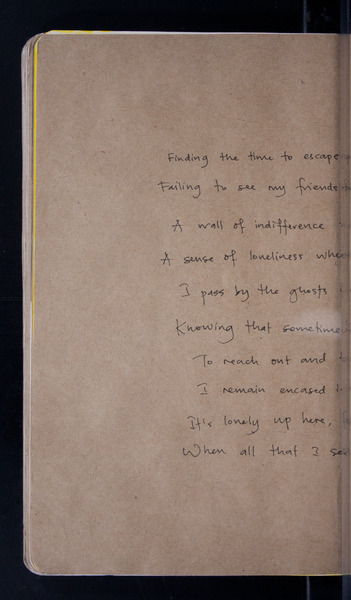 Finding the time to escape
Failing to see my friends
A wall of indifference
A sense of loneliness
I pass by the ghosts
Knowing that sometimes
To reach out and
I remain encased
It's lonely up here,
When all that I